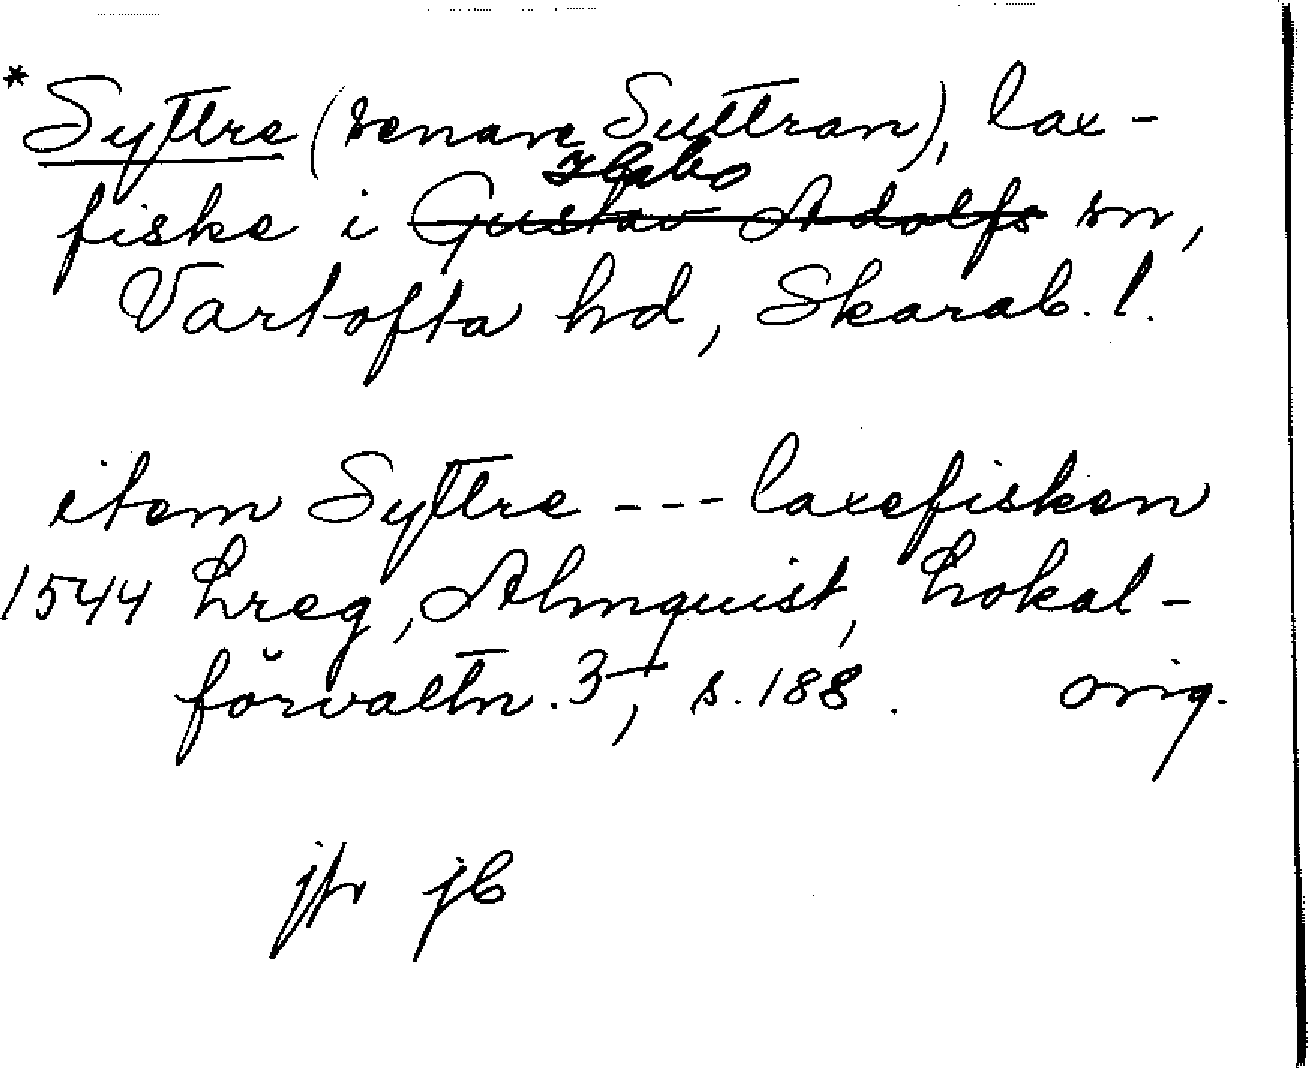 * Syttre (senare Suttran), lax-
Habo
fiske i Gustav Adolfs sn,
Vartofta hd, Skarab. l.
item Syttre --- laxefisken
1544 Lreg, Almquist, Lokal-
förvaltn. 3, s. 188. orig.
jfr jb